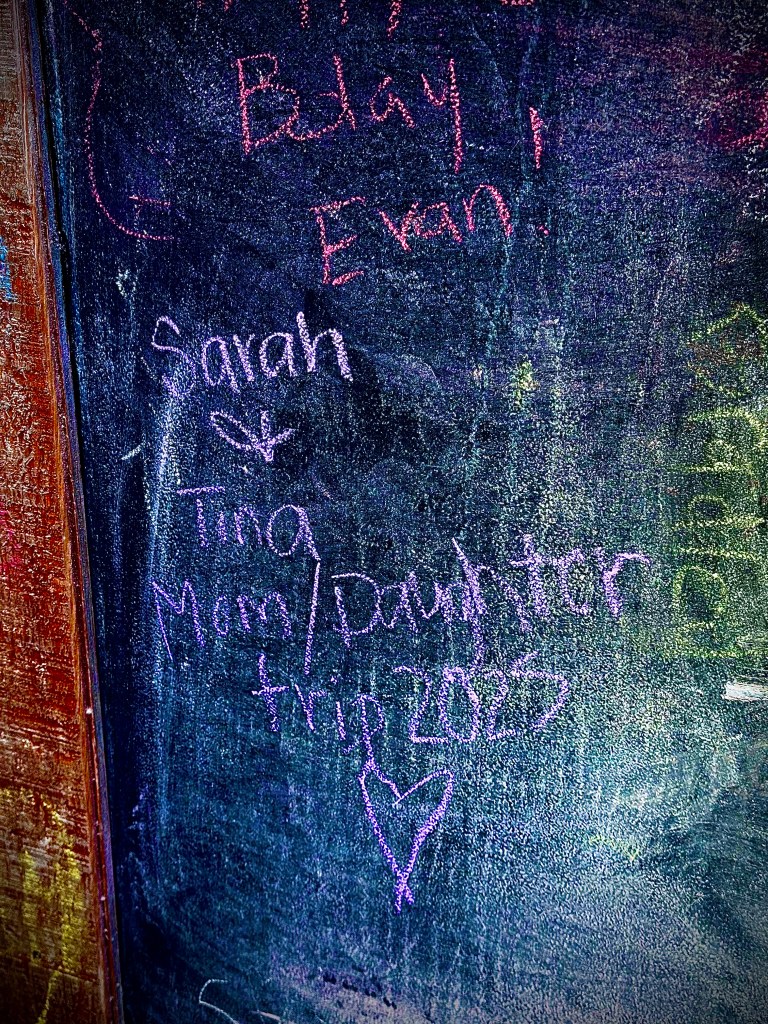 Bday,
Evan.
Sarah
&
Tina
Mom/Daughter
trip 2025